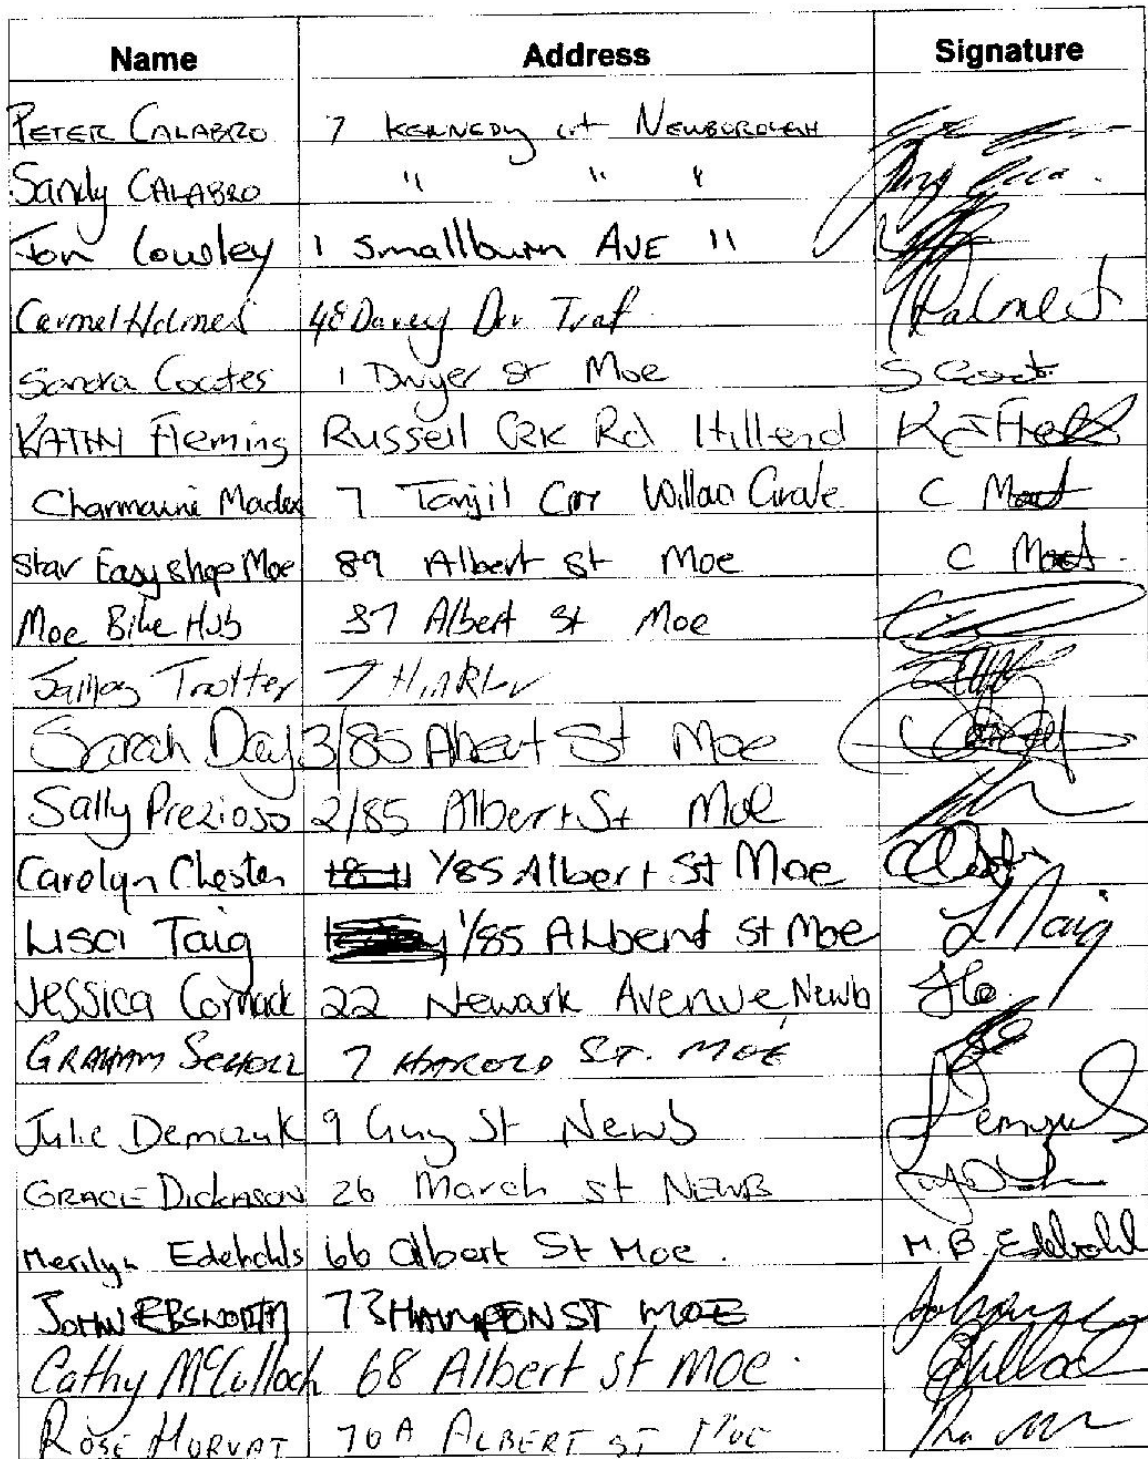 Name Address Signature
PETER CALABRO 7 KENNEDY crt NEWBOROUGH
Sandy CALABRO " " "
Jon Lowsley 1 Smallburn AVE "
Carmel Holmes 48 Davey Drv Traf
Sandra Coates 1 Dwyer st Moe S Coat
KATHY Fleming Russell CRK Rd Hillend
Charmaine 7 Tanjil Crr Willow Grove C
Star Easy shop Moe 89 Albert st Moe C
Moe Bike Hub 87 Albert st Moe
Trotter 7 Hinkler
Sarah Day 3/85 Abert St Moe
Sally Prezioso 2/85 Albert St Moe
Carolyn Chester 1/85 Albert St Moe
Lisa Taig 1/85 Albert st Moe LTaig
Jessica Cormack 22 Newark Avenue, Newb
GRAHAM SCHOLL 7 HAROLD ST. MOE
Julie Demczuk 9 Guy St Newb
GRACE DICKASON 26 March st NEWB
Merilyn Edebohls 66 Albert St Moe. M.B. Edebohl
JOHN EBSWORTH 73 HAMPTON ST MOE
Cathy McCulloch 68 Albert st Moe.
ROSE HORVAT 70A ALBERT ST MOE